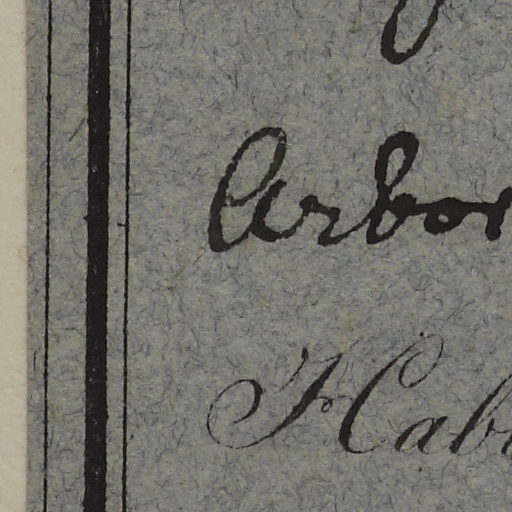 Arbor
Hab